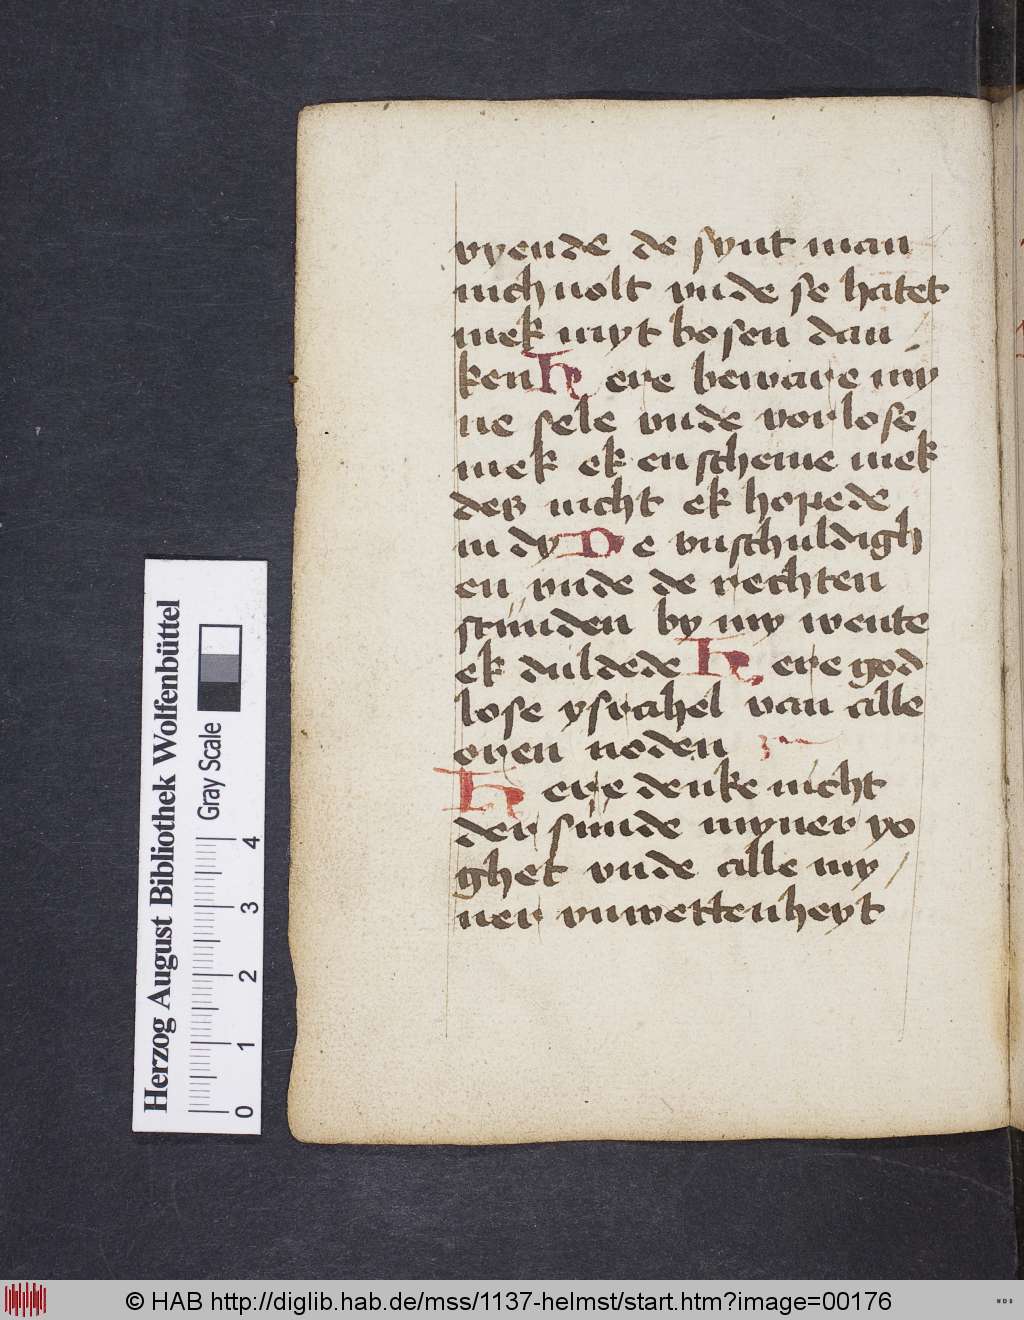 vyende de synt man
nichuolt vnde se hatet
mek myt bosen dan
ken Here beware my
ne sele vnde vorlose
mek ek enscheme mek
des nicht ek hopede
in dy De vnschuldigh
en vnde de rechten
stunden by my wente
ek duldede Here god
lose ysrahel van alle
oren noden
Here denke nicht
der sunde myner yo
ghet vnde alle my
ner vnwettenheyt
Herzog August Bibliothek Wolfenbüttel
Gray Scale
0 1 2 3 4
© HAB http://diglib.hab.de/mss/1137-helmst/start.htm?image=00176